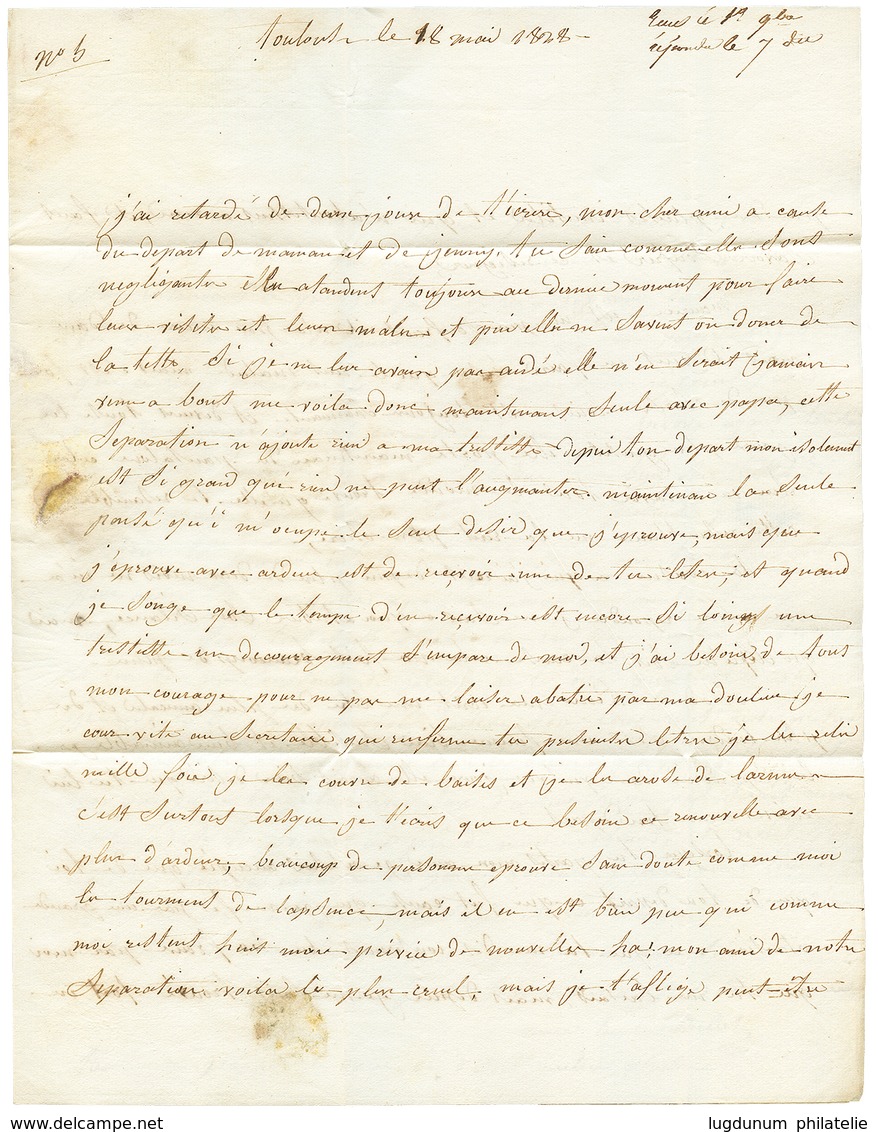 nº 5
toulouse le 18 mai 1828
reçue le 1er 9bre
répondu le 7 dit
j'ai retardé de deux jours de t'ecrire, mon cher ami a cause
du depart de maman et de jenny. tu sais comme elles sont
negligentes elles atandent toujours au dernier moment pour faire
leur visites et leurs males et puis elles ne savent ou doner de
la tette, si je ne leur avais pas aidé elle n'en serait jamais
venu a bout me voila donc maintenant seule avec papa, cette
separation n'ajoute rien a ma tristette depuis ton depart mon isolement
est si grand qui rien ne peut l'augmanter. maintenan la seule
pensé qu'i m'ocupe le seul desir que j'eprouve, mais que
j'éprouve avec ardeur est de reçevoir une de tes letres, et quand
je songe que le temps d'en reçevoir est encore si loing une
tristette un decouragement s'empare de moi, et j'ai besoin de tous
mon courage pour ne pas me laiser abatre par ma douleur je
cour vite au secretaire qui renferme tes presieuses letres je les relis
mille fois je les couvre de baises et je les arose de larmes
c'est surtout lorsque je t'ecris que ce besoin ce renouvelle avec
plus d'ardeur, beaucoup de personne eprouve sans doute comme moi
les tourment de l'apsence, mais il en est bien peu qui comme
moi restent huit mois privée de nouvelles ha! mon ami de notre
separation voila le plus cruel, mais je t'aflige peut-être
lugdunum philatelie